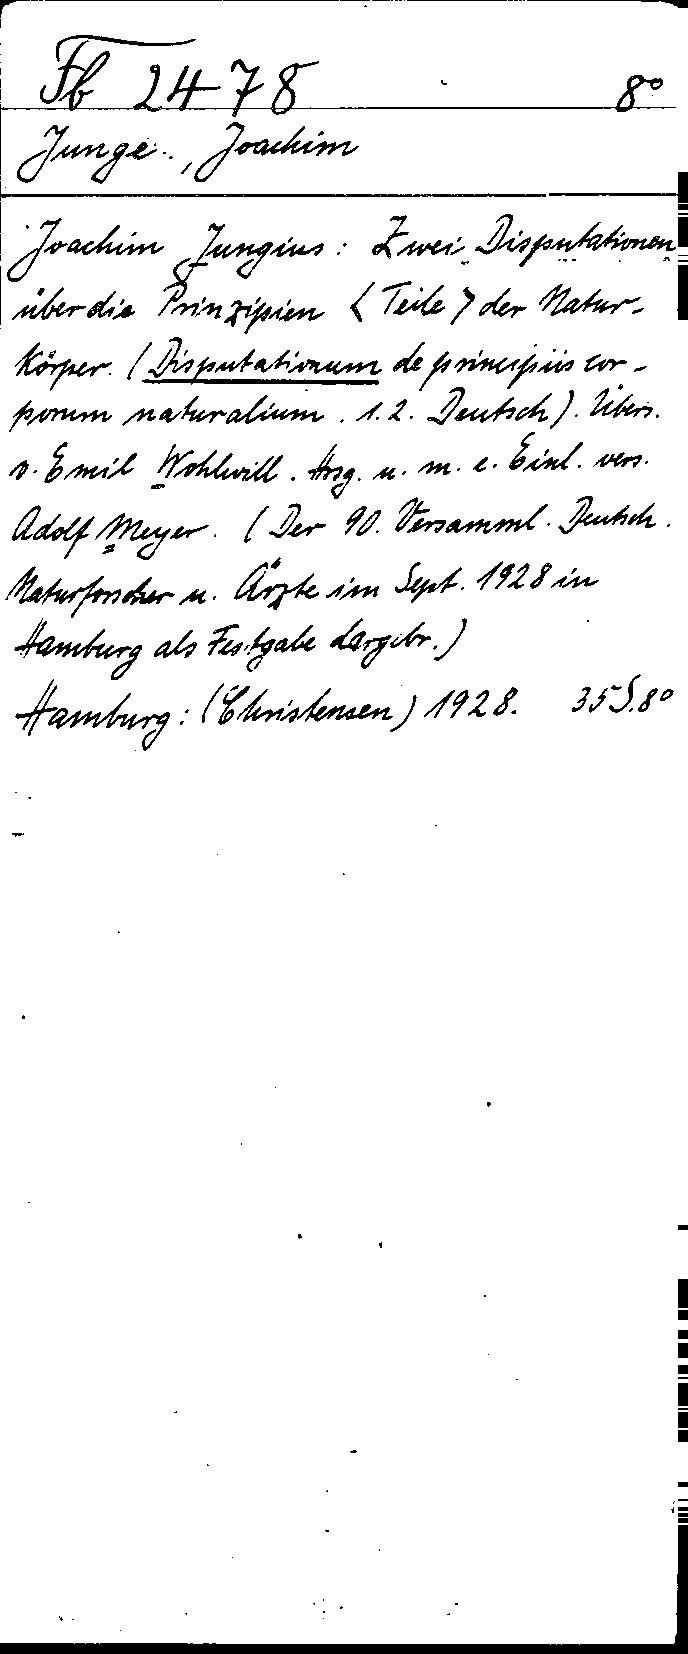 Fb 2478 8°
Junge.., Joachim
Joachim Jungius: Zwei Disputationen
über die Prinzipien < Teile > der Natur-
Körper. (Disputationum de principiis cor-
porum naturalium. 1.2. Deutsch). Übers.
v. Emil Wohlwill. Hrsg. u. m. e. Einl. vers.
Adolf Meyer. (Der 90. Versamml. Deutsch.
Naturforscher u. Ärzte im Sept. 1928 in
Hamburg als Festgabe dargebr.)
Hamburg: (Christensen) 1928. 35 S. 8°